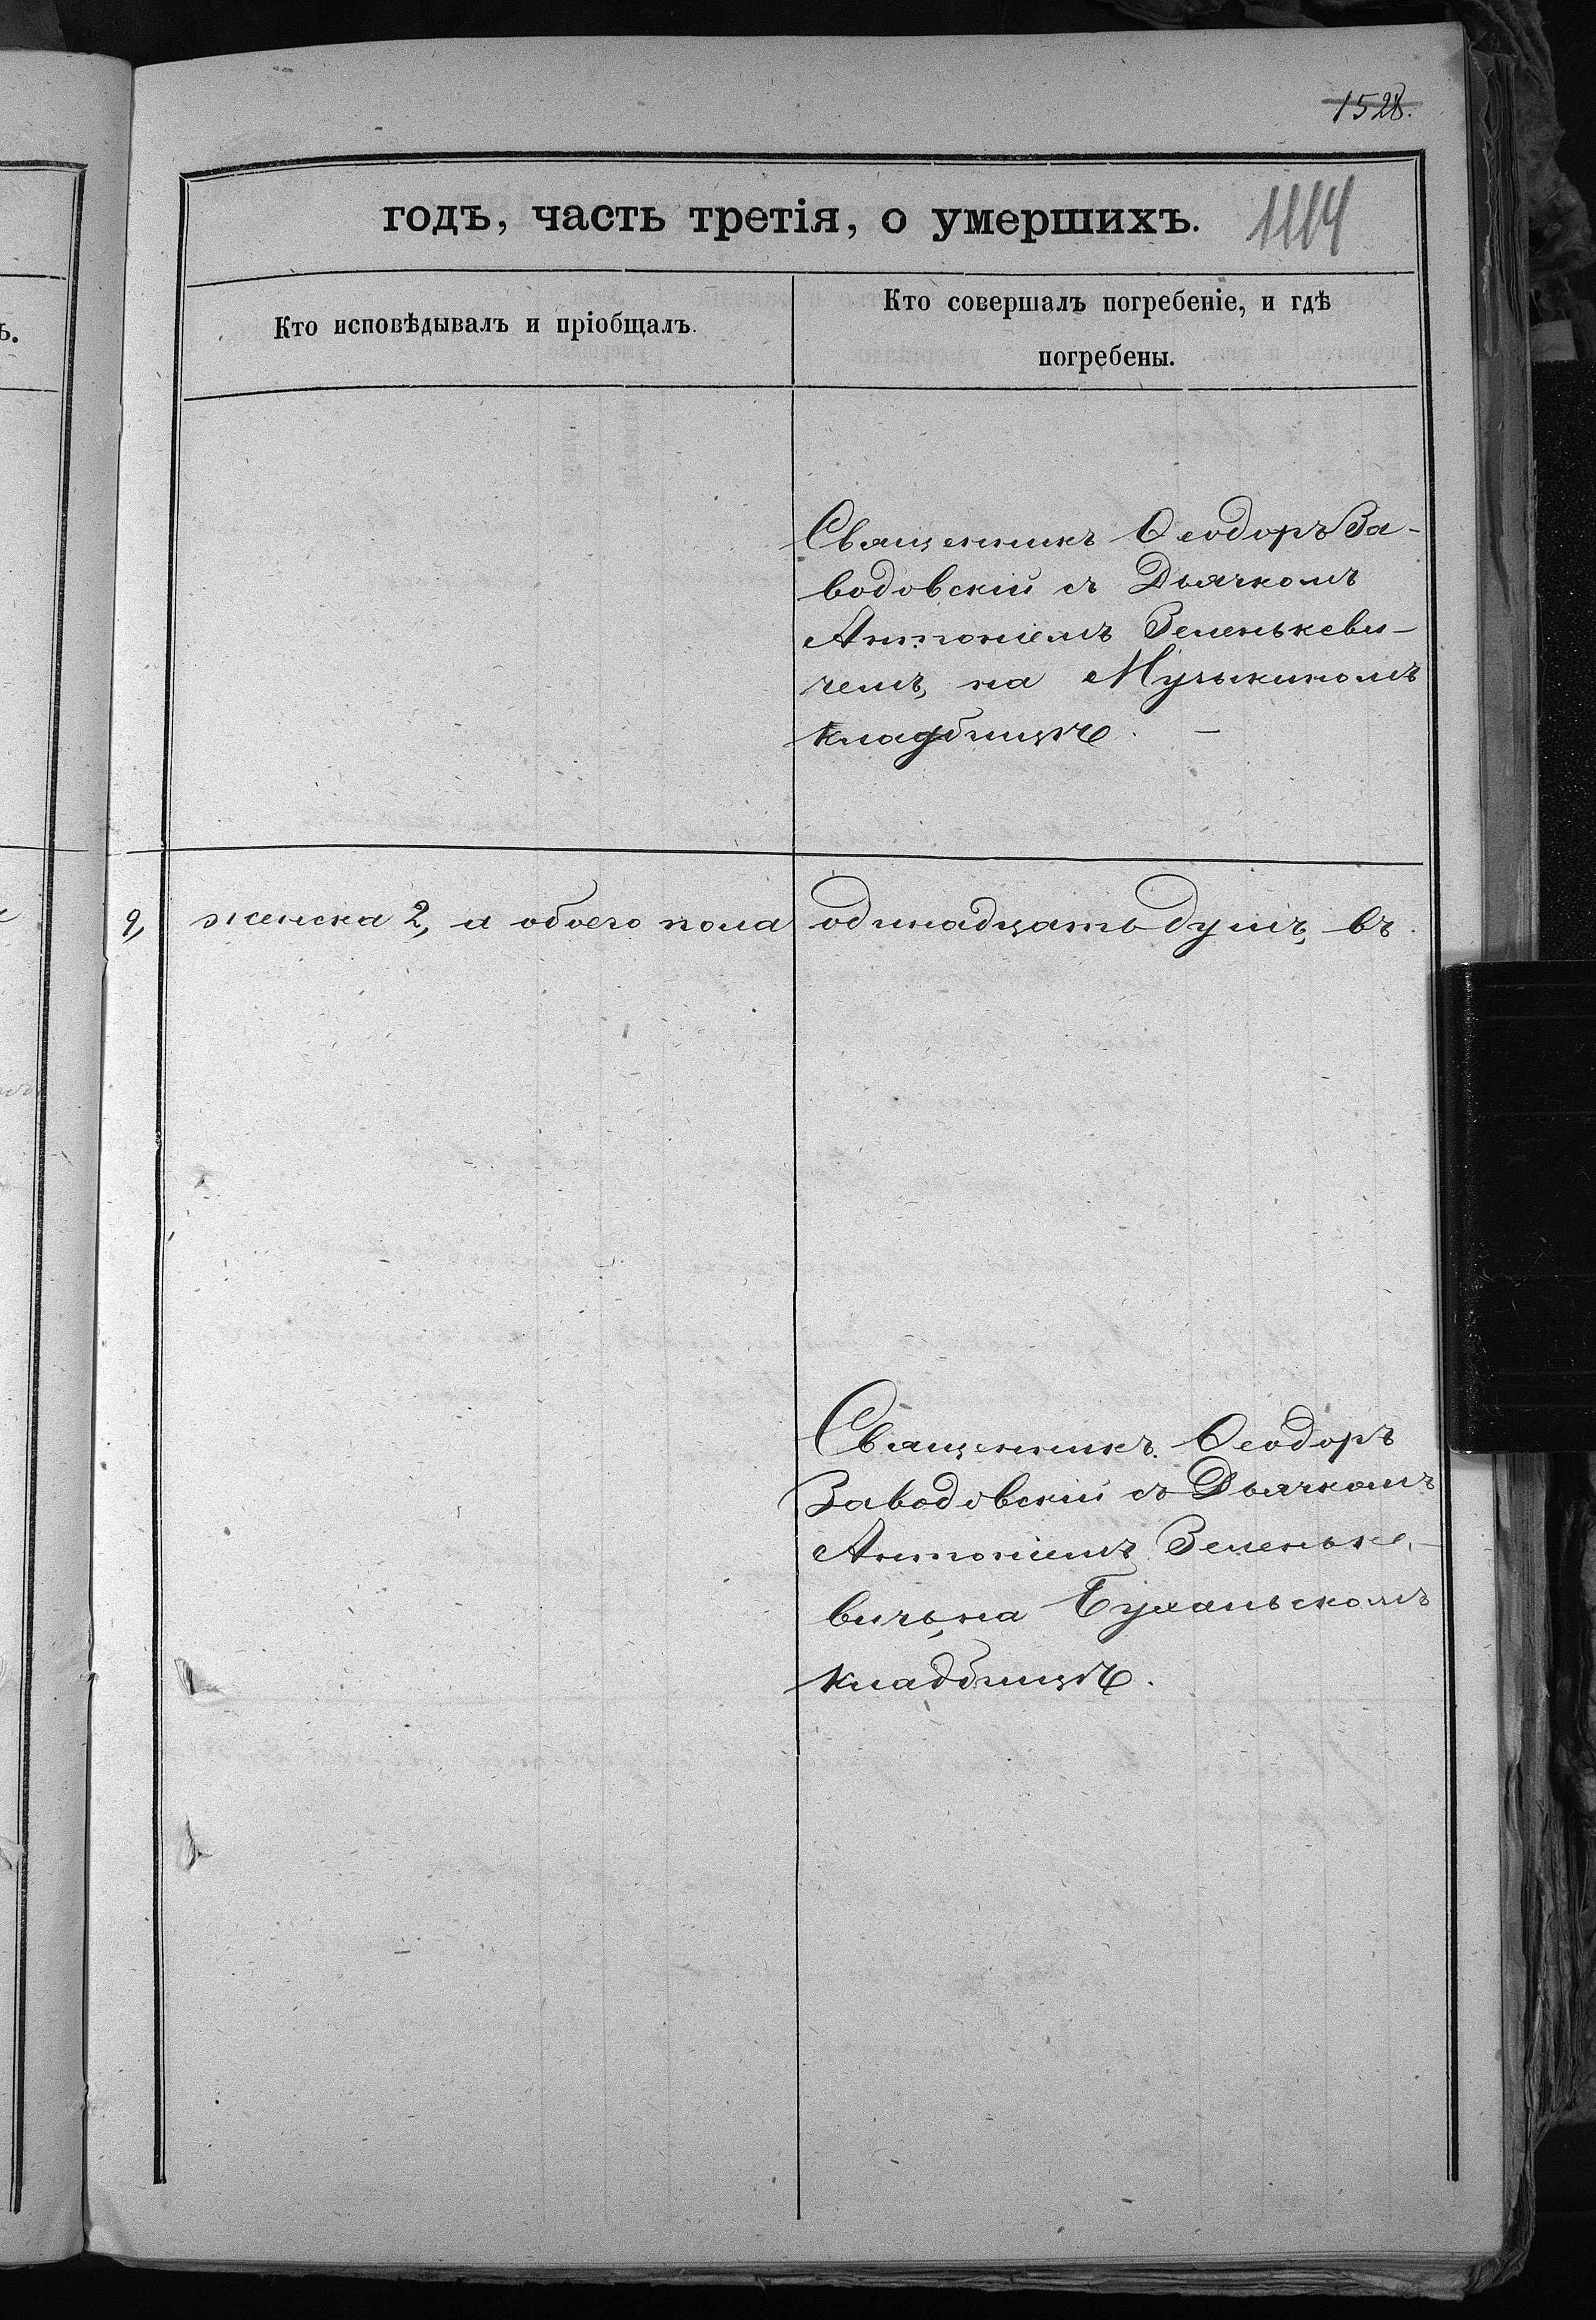 1528.
годъ, часть третія, о умершихъ.
1114
Кто исповѣдывалъ и пріобщалъ.
Кто совершалъ погребеніе, и гдѣ
погребены.
Священникъ Ѳеодоръ За-
водовскій съ Дьячкомъ
Антоніемъ Зеленькеви-
чемъ, на
кладбищѣ. —
9, женска 2, а обоего пола одинадцать душъ, въ
Священникъ Ѳеодоръ
Заводовскій съ Дьячкомъ
Антоніемъ Зеленьке-
вичъ, на
кладбищѣ.